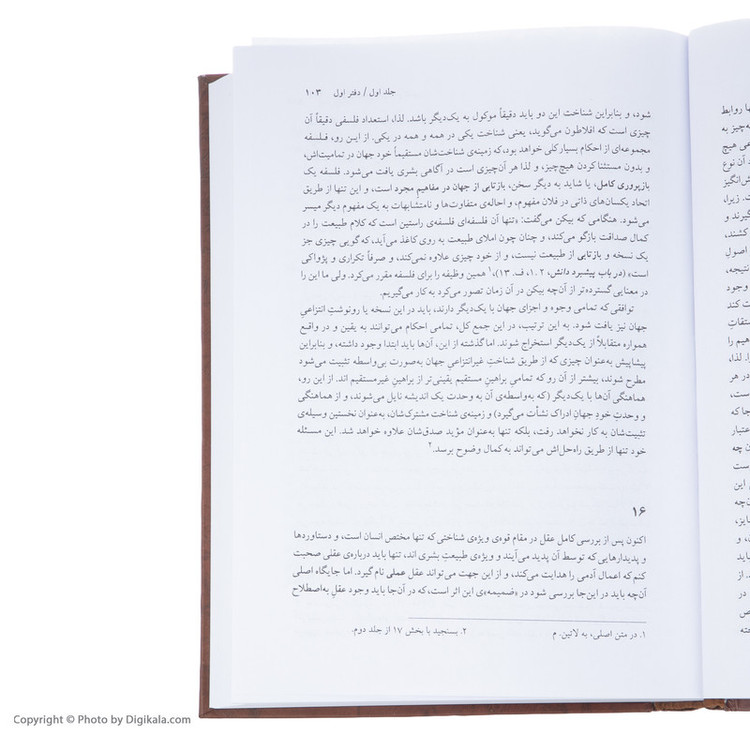 جلد اول / دفتر اول ۱۰۳
شود، و بنابراین شناخت این دو باید دقیقاً موکول به یک‌دیگر باشد. لذا، استعداد فلسفی دقیقاً آن
چیزی است که افلاطون می‌گوید، یعنی شناخت یکی در همه و همه در یکی. از این رو، فلسفه
مجموعه‌ای از احکام بسیار کلی خواهد بود، که زمینه‌ی شناخت‌شان مستقیماً خود جهان در تمامیت‌اش،
و بدون مستثنا کردن هیچ‌چیز، و لذا هر آن‌چیزی است در آگاهی بشری یافت می‌شود. فلسفه یک
بازپروری کامل، یا شاید به دیگر سخن، بازتابی از جهان در مفاهیم مجرد است، و این تنها از طریق
اتحاد یکسان‌های ذاتی در فلان مفهوم، و احاله‌ی متفاوت‌ها و نامتشابهات به یک مفهوم دیگر میسر
می‌شود. هنگامی که بیکن می‌گفت: «تنها آن فلسفه‌ای فلسفه‌ی راستین است که کلام طبیعت را در
کمال صداقت بازگو می‌کند، و چنان چون املای طبیعت به روی کاغذ می‌آید، که گویی چیزی جز
یک نسخه و بازتابی از طبیعت نیست، و از خود چیزی علاوه نمی‌کند، و صرفاً تکراری و پژواکی
است» (در باب پیشبرد دانش، ۲ .۱، ف. ۱۳)،۱ همین وظیفه را برای فلسفه مقرر می‌کرد. ولی ما این را
در معنایی گسترده‌تر از آن‌چه بیکن در آن زمان تصور می‌کرد به کار می‌گیریم.
توافقی که تمامی وجوه و اجزای جهان با یک‌دیگر دارند، باید در این نسخه یا رونوشتِ انتزاعیِ
جهان نیز یافت شود. به این ترتیب، در این جمع کل، تمامی احکام می‌توانند به یقین و در واقع
همواره متقابلاً از یک‌دیگر استخراج شوند. اما گذشته از این، آن‌ها باید ابتدا وجود داشته، و بنابراین
پیشاپیش به‌عنوان چیزی که از طریق شناختِ غیرانتزاعیِ جهان به‌صورت بی‌واسطه تثبیت می‌شود
مطرح شوند، بیشتر از آن رو که تمامی براهینِ مستقیم یقینی‌تر از براهین غیرمستقیم اند. از این رو،
هماهنگی آن‌ها با یک‌دیگر (که به‌واسطه‌ی آن به وحدت یک اندیشه نایل می‌شوند، و از هماهنگی
و وحدتِ خودِ جهانِ ادراک نشأت می‌گیرد) و زمینه‌ی شناخت مشترک‌شان، به‌عنوان نخستین وسیله‌ی
تثبیت‌شان به کار نخواهد رفت، بلکه تنها به‌عنوان مؤید صدق‌شان علاوه خواهد شد. این مسئله
خود تنها از طریق راه‌حل‌اش می‌تواند به کمال وضوح برسد.۲
۱۶
اکنون پس از بررسی کامل عقل در مقام قوه‌ی ویژه‌ی شناختی که تنها مختص انسان است، و دستاوردها
و پدیدارهایی که توسط آن پدید می‌آیند و ویژه‌ی طبیعتِ بشری اند، تنها باید درباره‌ی عقلی صحبت
کنم که اعمال آدمی را هدایت می‌کند، و از این جهت می‌تواند عقل عملی نام گیرد. اما جایگاه اصلی
آن‌چه باید در این‌جا بررسی شود در «ضمیمه»ی این اثر است، که در آن‌جا باید وجود عقلِ به‌اصطلاح
۱. در متن اصلی، به لاتین. م ۲. بسنجید با بخش ۱۷ از جلد دوم.
Copyright © Photo by Digikala.com